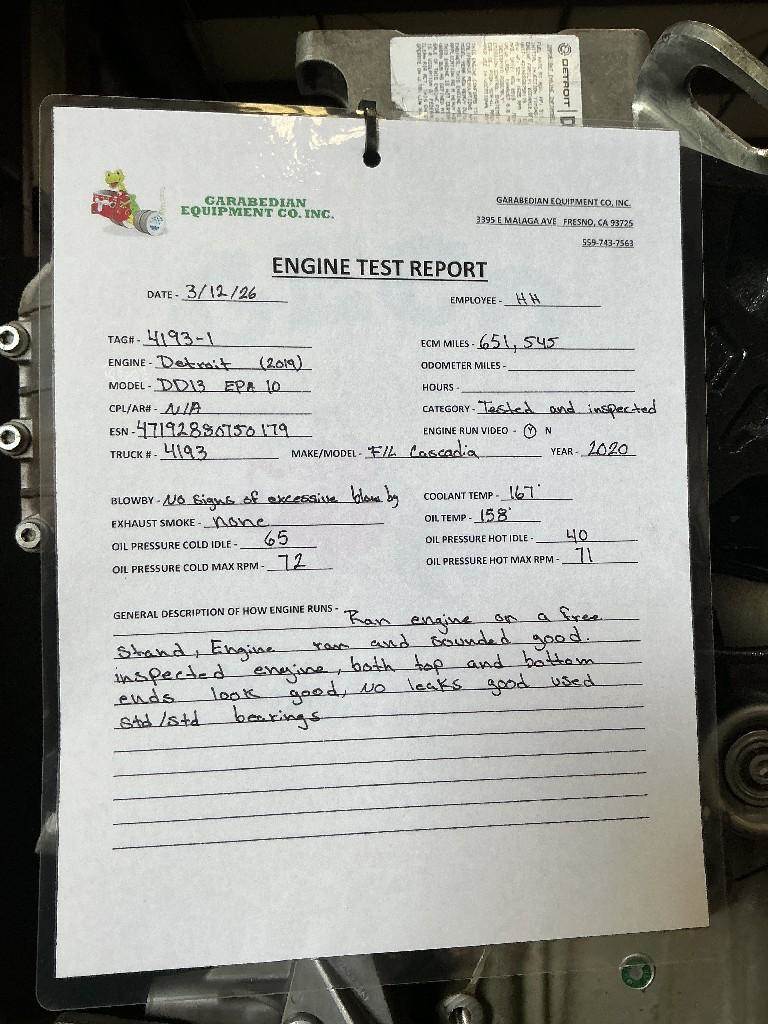 DETROIT
GARABEDIAN
EQUIPMENT CO. INC.
GARABEDIAN EQUIPMENT CO, INC.
3395 E MALAGA AVE FRESNO, CA 93725
559-743-7563
ENGINE TEST REPORT
DATE - 3/12/26 EMPLOYEE - HH
TAG# - 4193-1 ECM MILES - 651,545
ENGINE - Detroit (2019) ODOMETER MILES -
MODEL - DD13 EPA 10 HOURS -
CPL/AR# - N/A CATEGORY - Tested and inspected
ESN - 471928S0750179 ENGINE RUN VIDEO - Y N
TRUCK # - 4193 MAKE/MODEL - F/L Cascadia YEAR - 2020
BLOWBY - No signs of excessive blow by COOLANT TEMP - 167°
EXHAUST SMOKE - none OIL TEMP - 158°
OIL PRESSURE COLD IDLE - 65 OIL PRESSURE HOT IDLE - 40
OIL PRESSURE COLD MAX RPM - 72 OIL PRESSURE HOT MAX RPM - 71
GENERAL DESCRIPTION OF HOW ENGINE RUNS - Ran engine on a free
stand, Engine ran and sounded good.
inspected engine, both top and bottom
ends look good, No leaks good used
std/std bearings